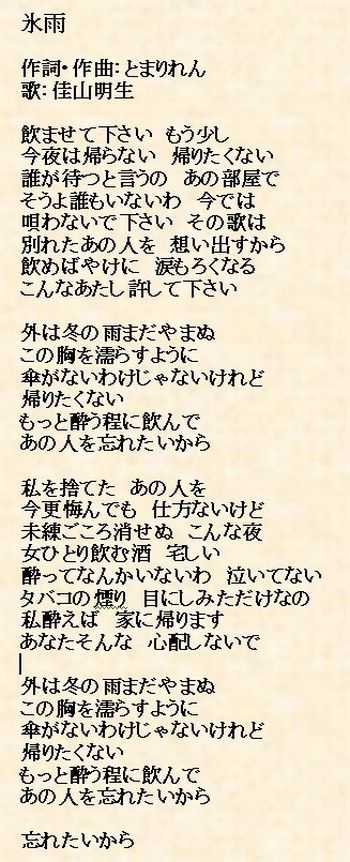 氷雨
作詞・作曲：とまりれん
歌：佳山明生
飲ませて下さい　もう少し
今夜は帰らない　帰りたくない
誰が待つと言うの　あの部屋で
そうよ誰もいないわ　今では
唄わないで下さい　その歌は
別れたあの人を　想い出すから
飲めばやけに　涙もろくなる
こんなあたし許して下さい
外は冬の雨まだやまぬ
この胸を濡らすように
傘がないわけじゃないけれど
帰りたくない
もっと酔う程に飲んで
あの人を忘れたいから
私を捨てた　あの人を
今更悔んでも　仕方ないけど
未練ごころ消せぬ　こんな夜
女ひとり飲む酒　宅しい
酔ってなんかいないわ　泣いてない
タバコの煙り　目にしみただけなの
私酔えば　家に帰ります
あなたそんな　心配しないで
外は冬の雨まだやまぬ
この胸を濡らすように
傘がないわけじゃないけれど
帰りたくない
もっと酔う程に飲んで
あの人を忘れたいから
忘れたいから